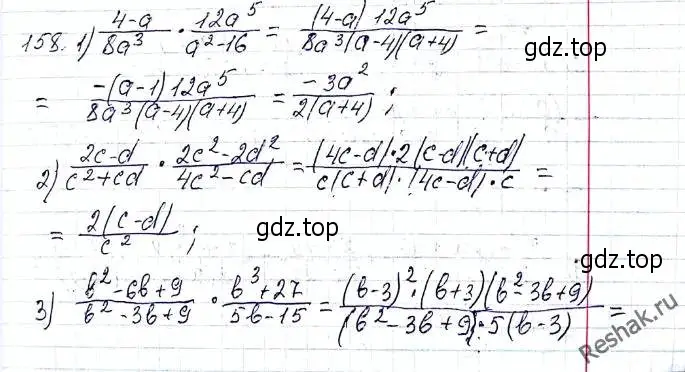 158. 1) \frac{4-a}{8a^3} \cdot \frac{12a^5}{a^2-16} = \frac{(4-a) 12a^5}{8a^3(a-4)(a+4)} =
gdz.top
= \frac{-(a-1) 12a^5}{8a^3(a-4)(a+4)} = \frac{-3a^2}{2(a+4)};
2) \frac{2c-d}{c^2+cd} \cdot \frac{2c^2-2d^2}{4c^2-cd} = \frac{(4c-d) \cdot 2(c-d)(c+d)}{c(c+d) \cdot (4c-d) \cdot c} =
= \frac{2(c-d)}{c^2};
gdz.top
gdz.top
3) \frac{b^2-6b+9}{b^2-3b+9} \cdot \frac{b^3+27}{5b-15} = \frac{(b-3)^2 \cdot (b+3)(b^2-3b+9)}{(b^2-3b+9) \cdot 5(b-3)} =
Reshak.ru